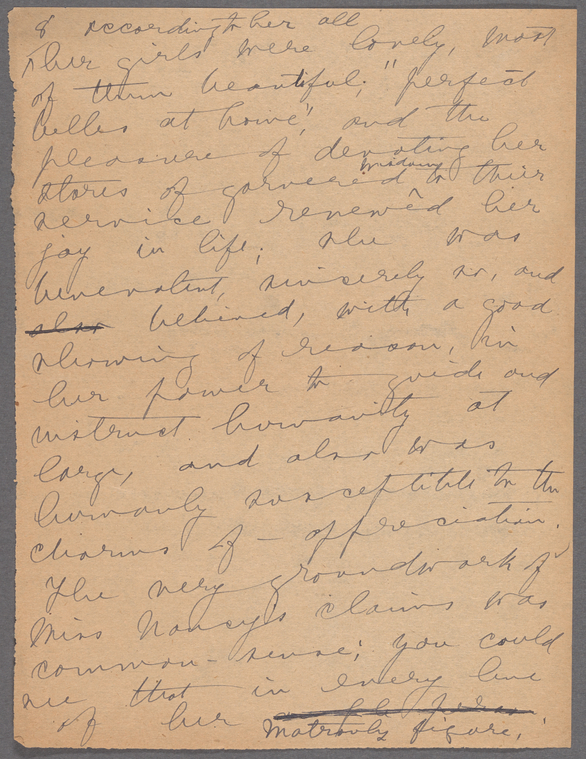 8 according to her all
her girls were lovely, most
of them beautiful; "perfect
belles at home", and the
pleasure of devoting her
stores of garnered wisdom to their
service renewed her
joy in life; she was
benevolent, sincerely so, and
also believed, with a good
showing of reason, in
her power to guide and
instruct humanity at
large, and also was
humanly susceptible to the
charms of – appreciation.
The very groundwork of
Miss Nancy's claims was
common-sense; you could
see that in every line
of her
matronly figure,